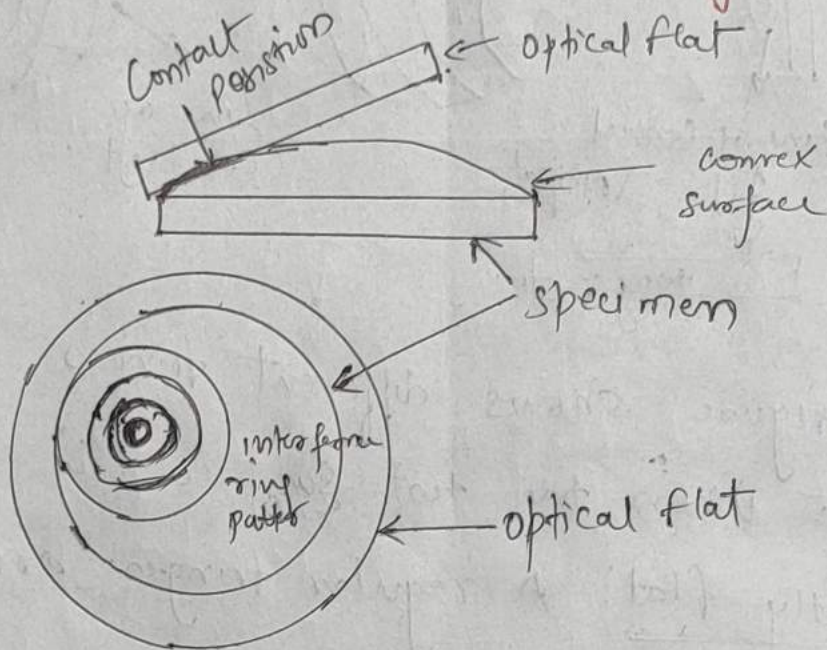 Contact
position
optical flat
convex
surface
specimen
interference
ring
patter
optical flat